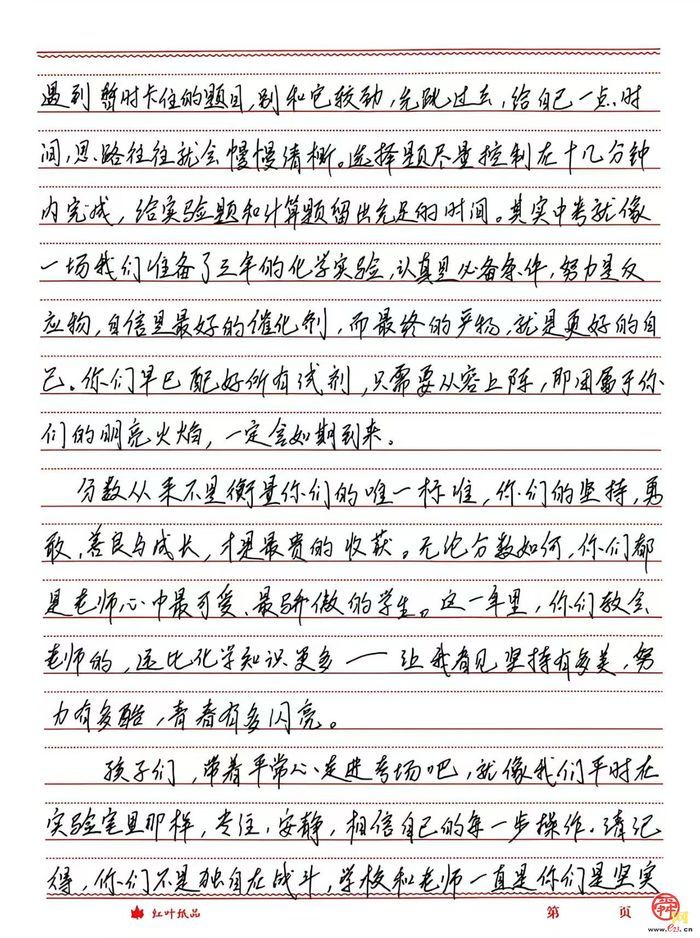 遇到暂时卡住的题目，别和它较劲，先跳过去，给自己一点时
间，思路往往就会慢慢清晰。选择题尽量控制在十几分钟
内完成，给实验题和计算题留出充足的时间。其实中考就像
一场我们准备了三年的化学实验，认真是必备条件，努力是反
应物，自信是最好的催化剂，而最终的产物，就是更好的自
己。你们早已配好所有试剂，只需要从容上阵，即因属于你
们的明亮火焰，一定会如期到来。
分数从来不是衡量你们的唯一标准，你们的坚持，勇
敢，善良与成长，才是最贵的收获。无论分数如何，你们都
是老师心中最可爱、最骄傲的学生。这一年里，你们教会
老师的，远比化学知识更多——让我看见坚持有多美，努
力有多酷，青春有多闪亮。
孩子们，带着平常心走进考场吧，就像我们平时在
实验室里那样，专注，安静，相信自己的每一步操作。请记
得，你们不是独自在战斗，学校和老师一直是你们是坚实
红叶纸品
第 页
舜网
www.e23.cn